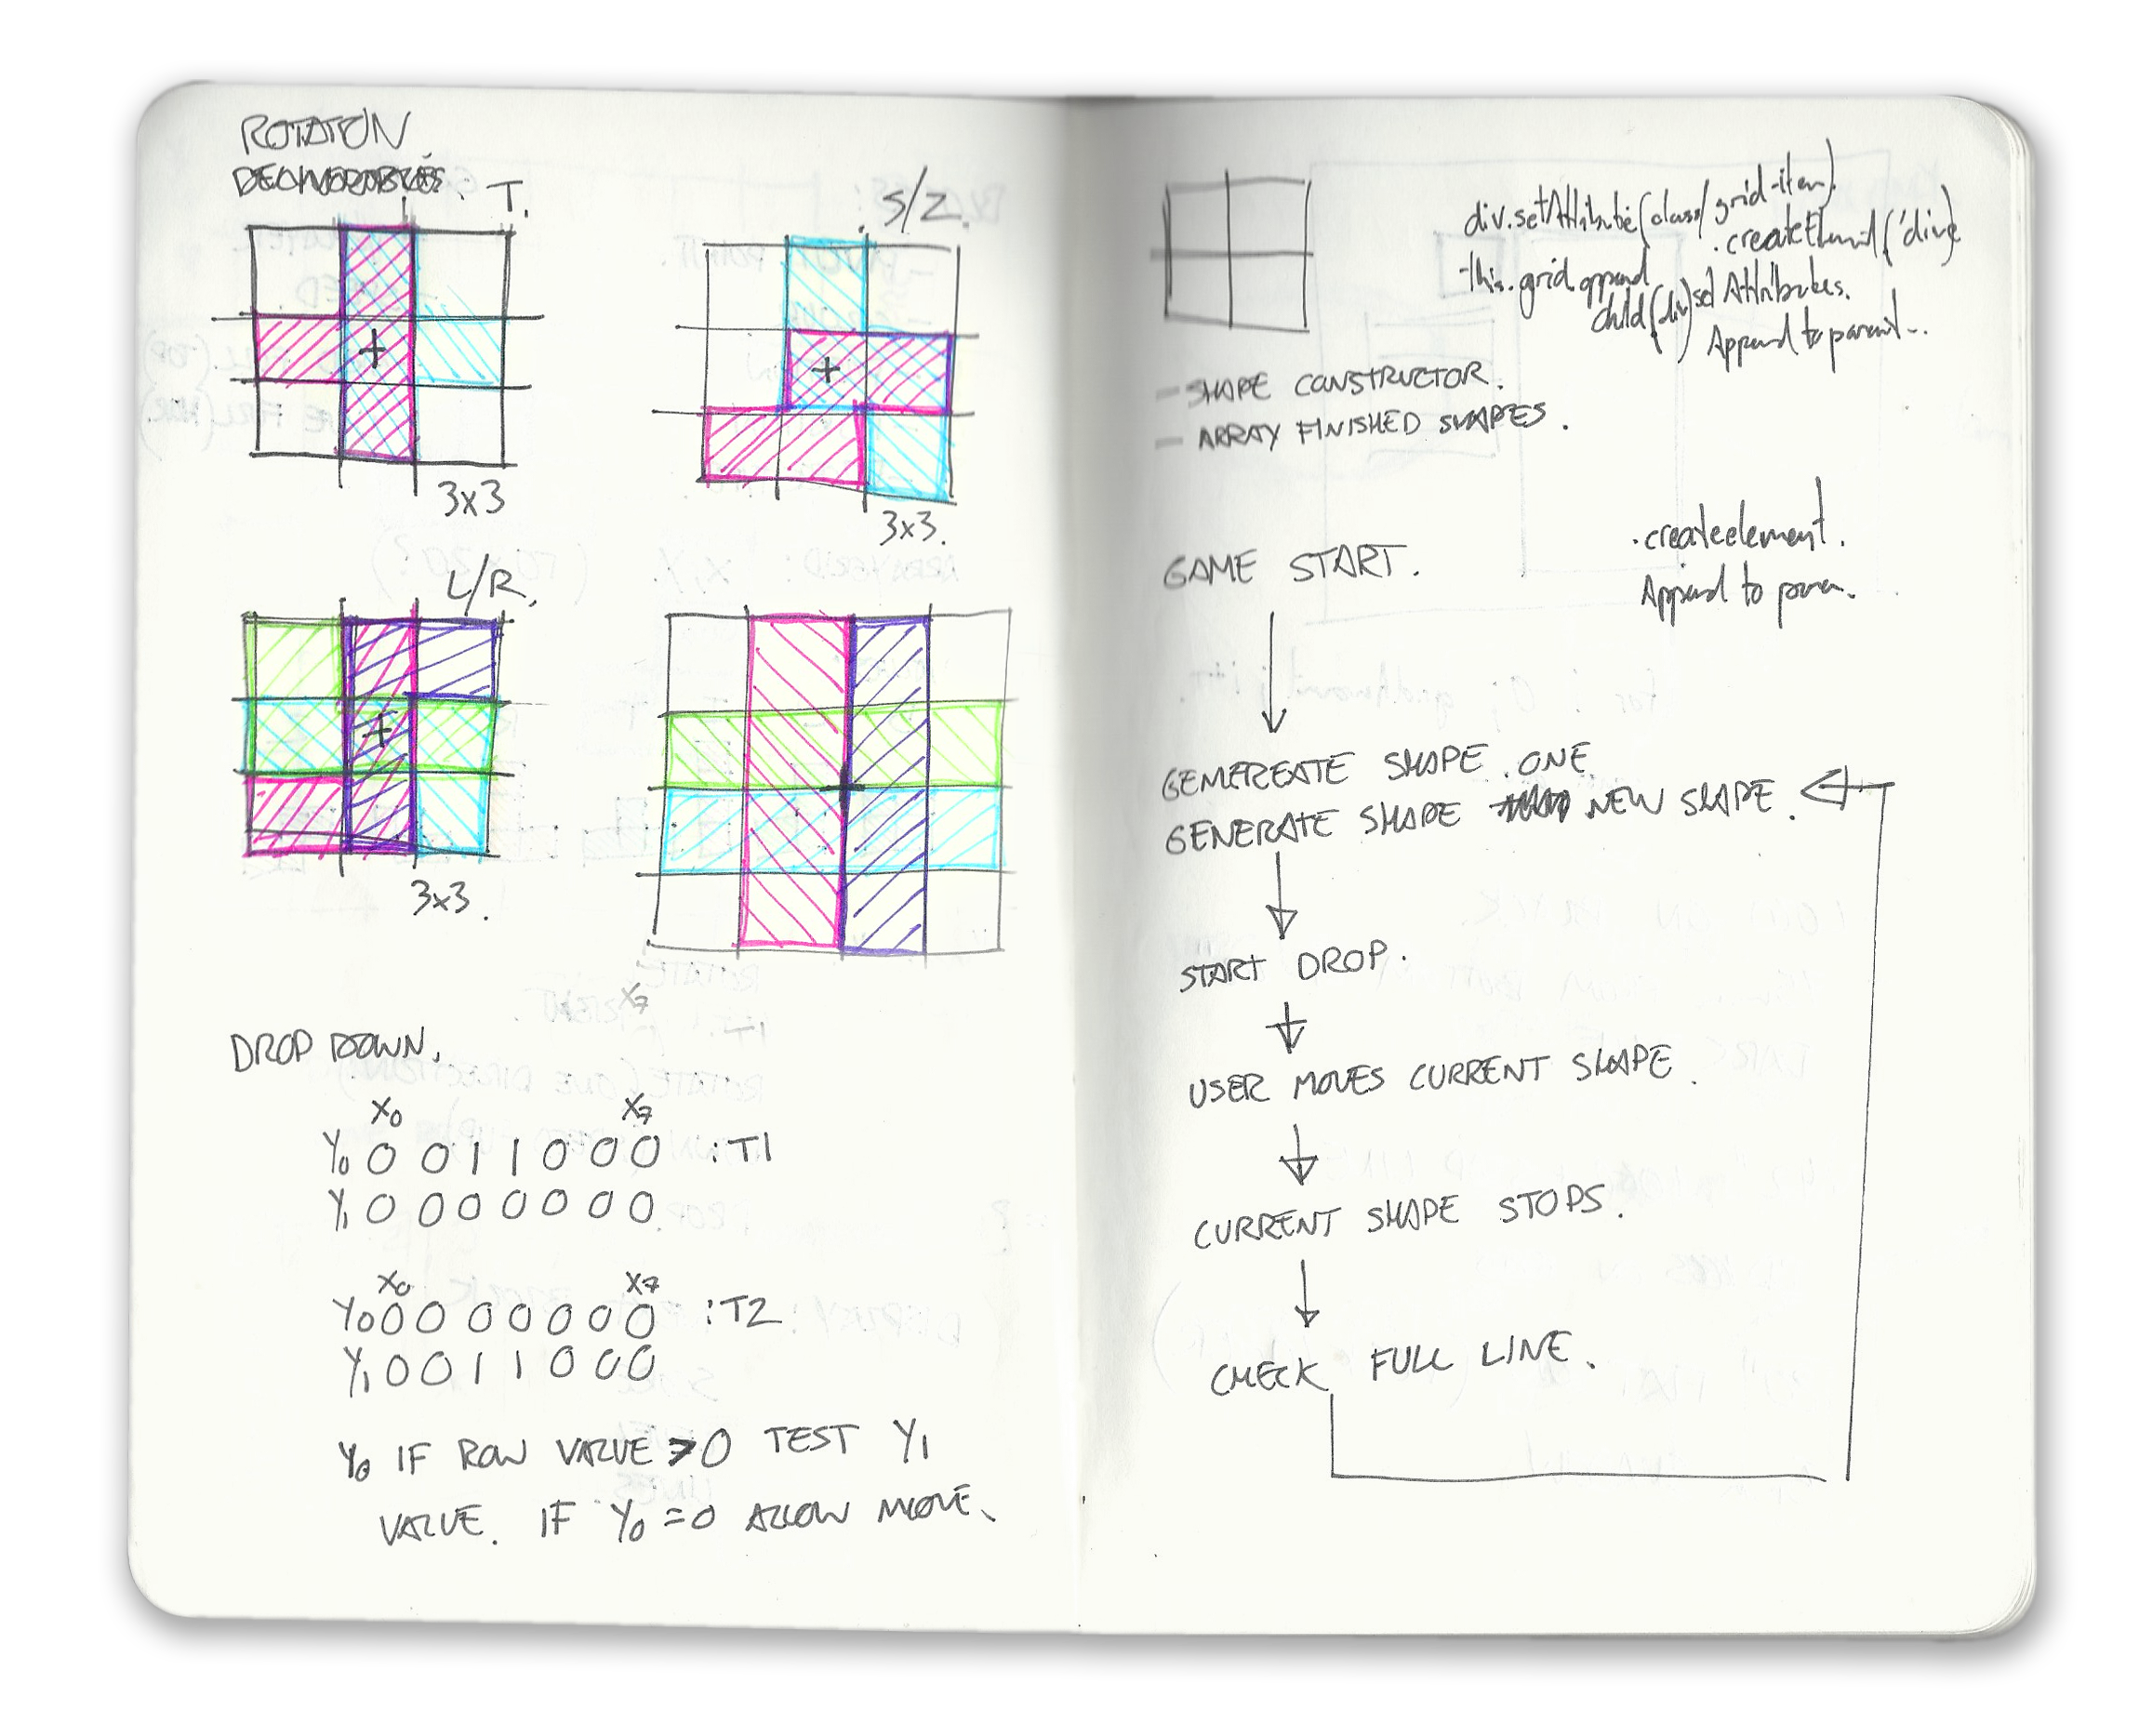 ROTATION.
T.
S/Z.
3x3
3x3.
L/R.
3x3.
X7
DROP DOWN.
X0 X7
Y0 0 0 1 1 0 0 0 :T1
Y1 0 0 0 0 0 0 0
X0 X7
Y0 0 0 0 0 0 0 0 :T2
Y1 0 0 1 1 0 0 0
Y0 IF ROW VALUE >0 TEST Y1
VALUE. IF Y0 =0 ALLOW MOVE.
div.setAttribute(class/grid-item).
.createElement('div')
this.grid append
child(div)
set Attributes.
Append to parent..
- SHAPE CONSTRUCTOR.
- ARRAY FINISHED SHAPES.
.createelement.
Append to paren.
GAME START.
GEMEREATE SHAPE. ONE
GENERATE SHAPE NEW SHAPE.
START DROP.
USER MOVES CURRENT SHAPE.
CURRENT SHAPE STOPS.
CHECK FULL LINE.